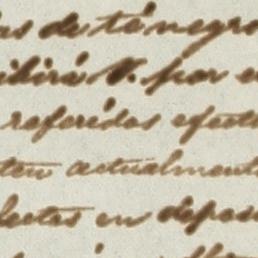 as de té negro
ibirá V. por e
referidos efect
ten actualment
fectos en depos